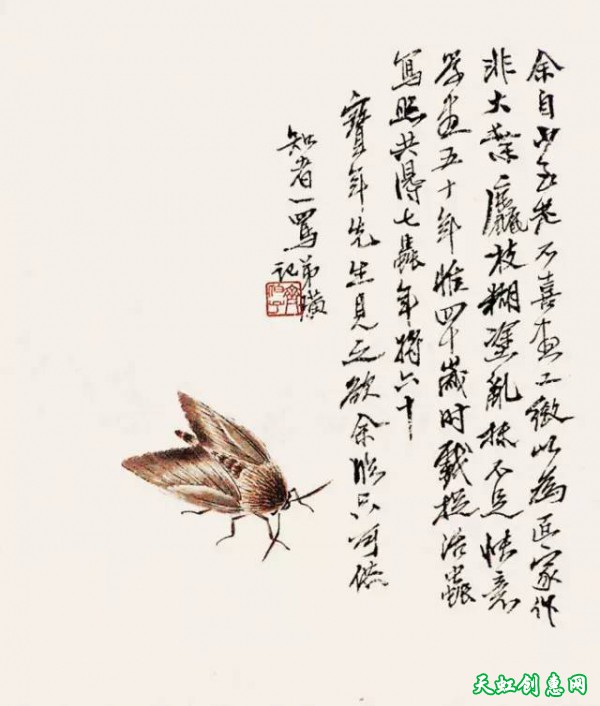 余自少至老不喜画工緻以為匠家作
非大葉麤枝糊塗亂抹不足快意
學画五十年惟四十歲時戲捉活蟲
寫照共得七蟲年將六十
寶年先生見之欲余臨只可供
知者一罵弟璜
記
天虹创惠网